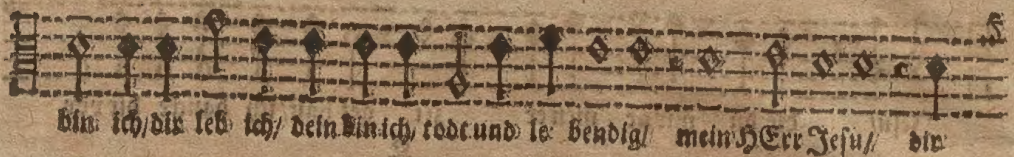 5
bin ich/dir leb ich/ dein bin ich, todt und le bendig/ mein HErr Jesu/ dir